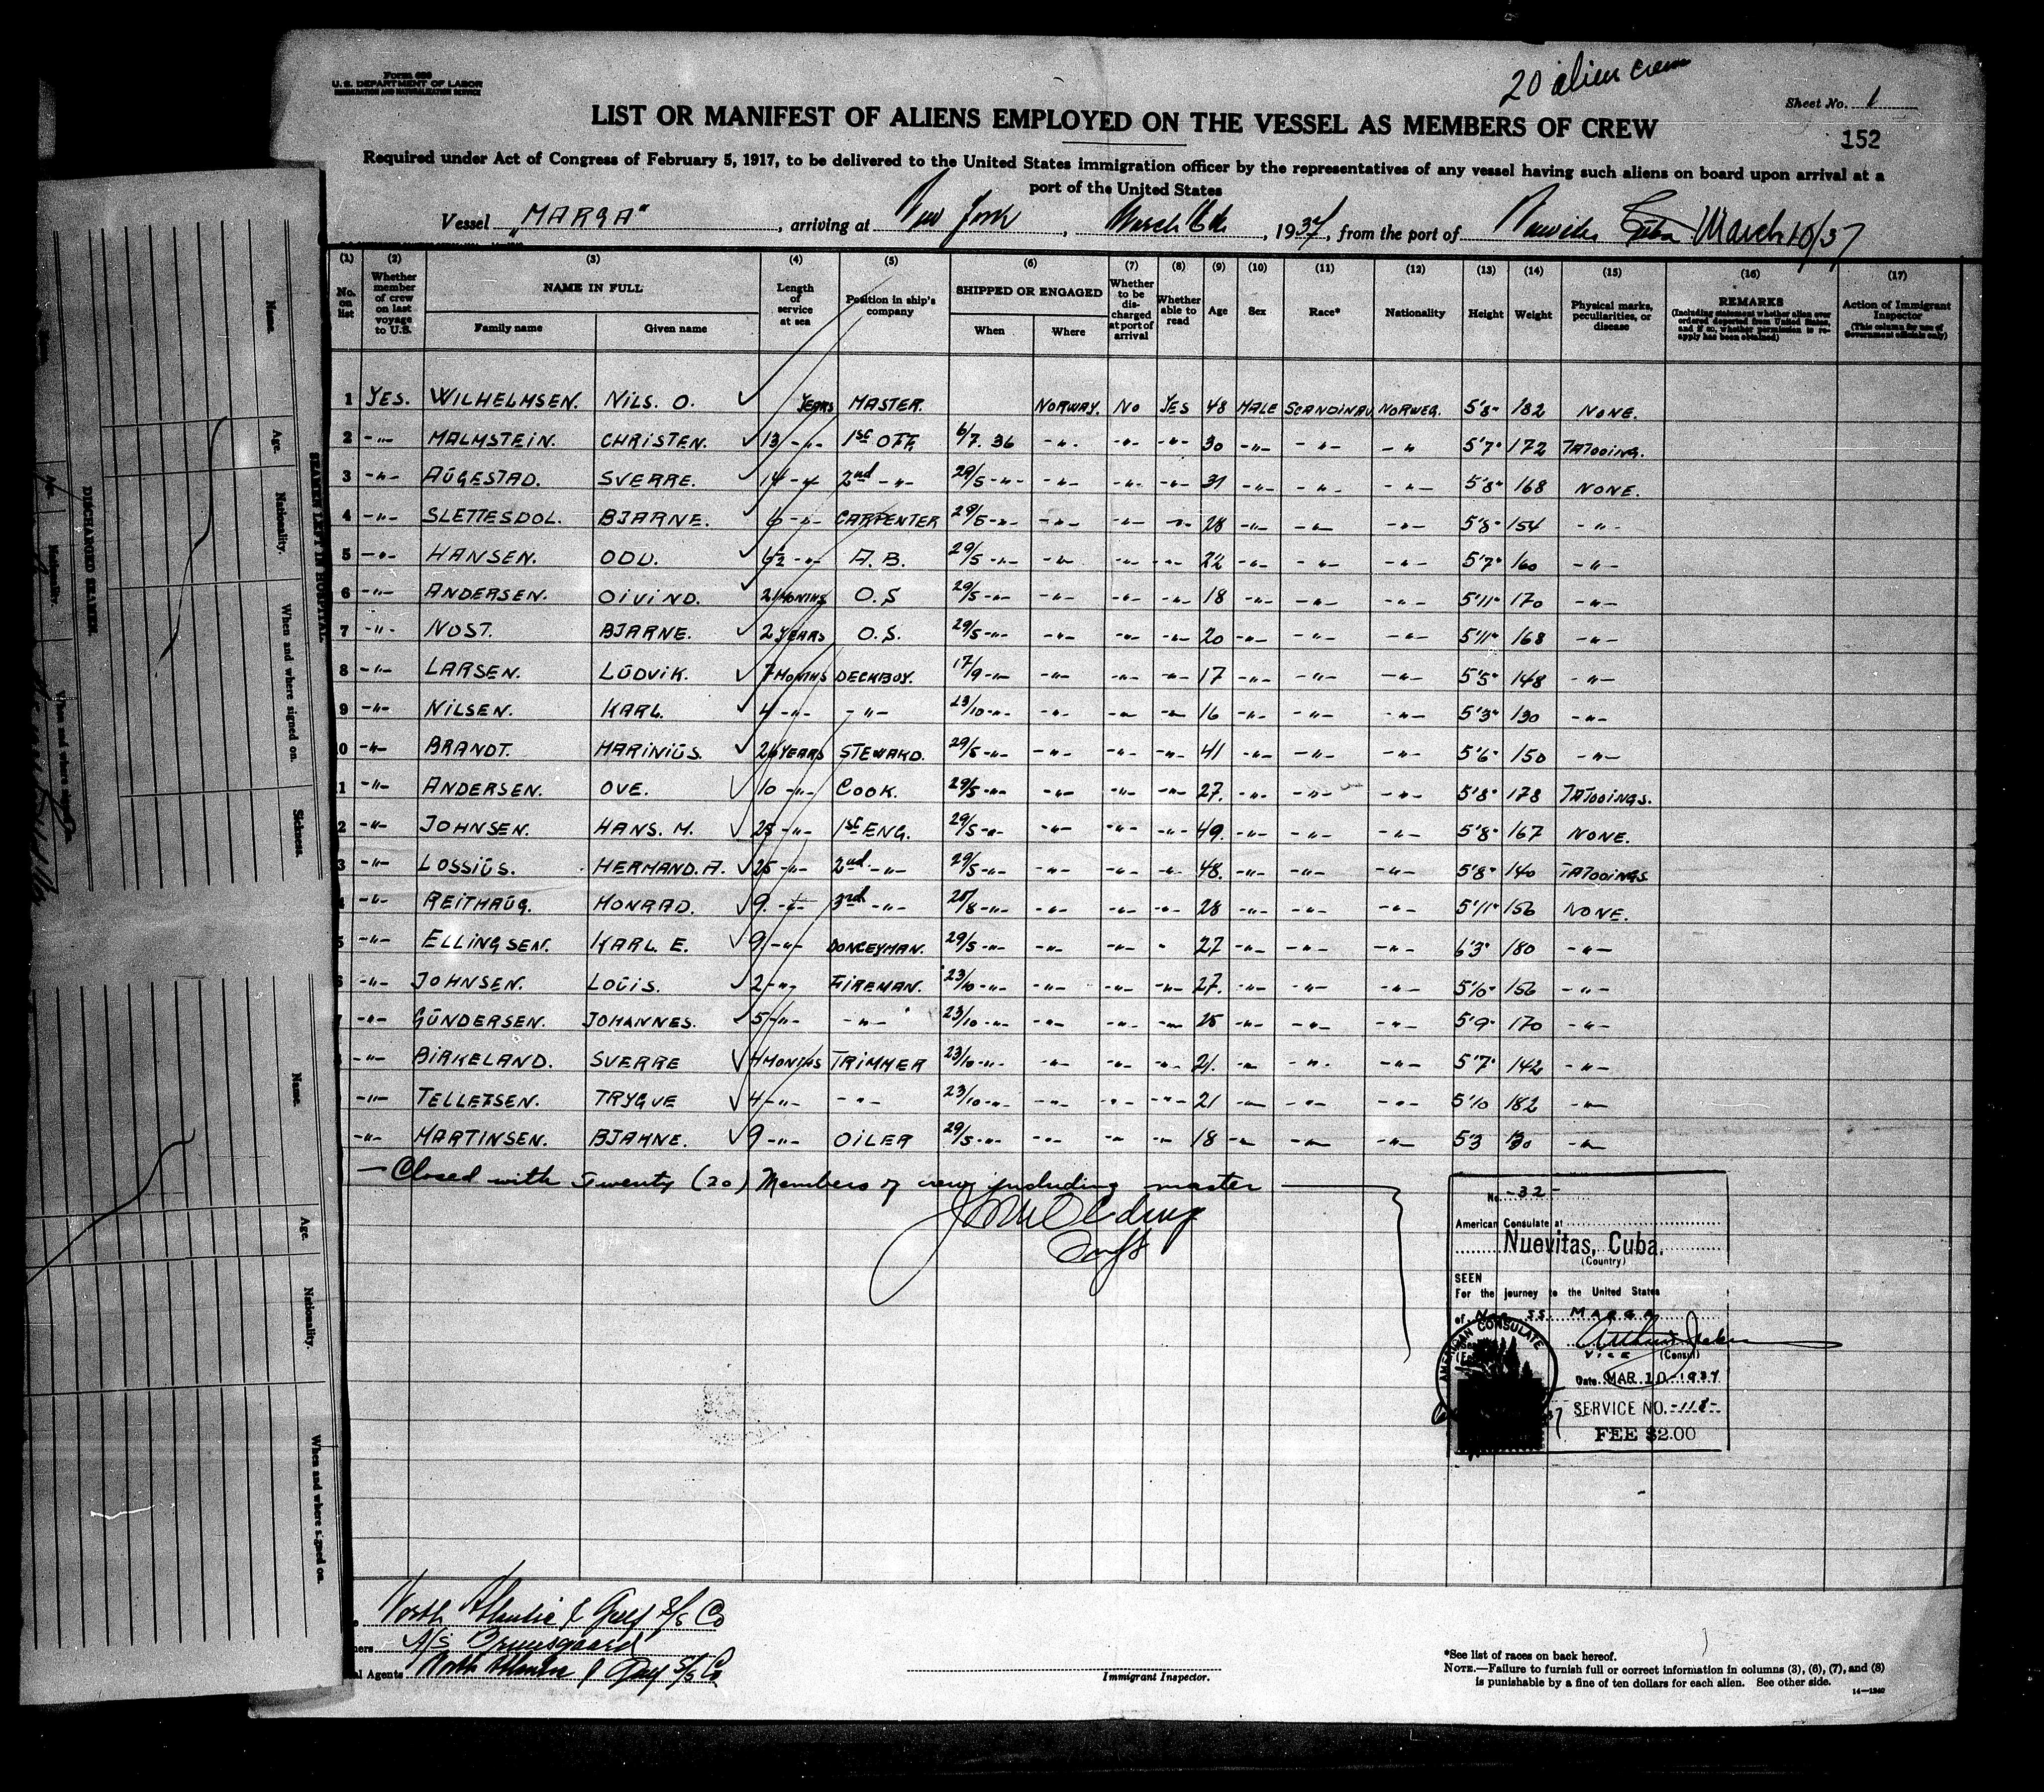 20 alien crew
Form 680
U.S. DEPARTMENT OF LABOR
IMMIGRATION AND NATURALIZATION SERVICE
Sheet No. 1
LIST OR MANIFEST OF ALIENS EMPLOYED ON THE VESSEL AS MEMBERS OF CREW
152
Required under Act of Congress of February 5, 1917, to be delivered to the United States immigration officer by the representatives of any vessel having such aliens on board upon arrival at a
port of the United States
Vessel "MARGA", arriving at New York, March 16th, 1937, from the port of Nuevitas Cuba March 10/37
(1) (2) (3) (4) (5) (6) (7) (8) (9) (10) (11) (12) (13) (14) (15) (16) (17)
No. on list
Whether member of crew on last voyage to U.S.
NAME IN FULL
Family name Given name
Length of service at sea
Position in ship's company
SHIPPED OR ENGAGED
When Where
Whether to be discharged at port of arrival
Whether able to read
Age
Sex
Race*
Nationality
Height
Weight
Physical marks, peculiarities, or disease
REMARKS
(Including statement whether alien ever ordered deported from United States, and if so, whether permission to reapply has been obtained)
Action of Immigrant Inspector
(This column for use of Government officials only)
1 YES. WILHELMSEN. NILS. O. YEARS MASTER. NORWAY. NO YES 48 MALE SCANDINAV NORWEG. 5'8" 182 NONE.
2 -"- MALMSTEIN. CHRISTEN. 13 -"- 1st OFF. 6/7. 36 -"- -"- -"- 30 -"- -"- -"- 5'7" 172 TATOOING.
3 -"- AUGESTAD. SVERRE. 14 -"- 2nd -"- 29/5 -"- -"- -"- -"- 31 -"- -"- -"- 5'8" 168 NONE.
4 -"- SLETTESDOL. BJARNE. 6 -"- CARPENTER 29/5 -"- -"- -"- -"- 28 -"- -"- -"- 5'8" 154 -"-
5 -"- HANSEN. ODD. 6½ -"- A.B. 29/5 -"- -"- -"- -"- 22 -"- -"- -"- 5'7" 160 -"-
6 -"- ANDERSEN. OIVIND. 21 MONTHS O.S 29/5 -"- -"- -"- -"- 18 -"- -"- -"- 5'11" 170 -"-
7 -"- NOST. BJARNE. 2 YEARS O.S. 29/5 -"- -"- -"- -"- 20 -"- -"- -"- 5'11" 168 -"-
8 -"- LARSEN. LUDVIK. 7 MONTHS DECKBOY. 17/9 -"- -"- -"- -"- 17 -"- -"- -"- 5'5" 148 -"-
9 -"- NILSEN. KARL. 4 -"- -"- 23/10 -"- -"- -"- -"- 16 -"- -"- -"- 5'3" 130 -"-
0 -"- BRANDT. MARINIUS. 26 YEARS STEWARD. 29/5 -"- -"- -"- -"- 41 -"- -"- -"- 5'6" 150 -"-
1 -"- ANDERSEN. OVE. 10 -"- COOK. 29/5 -"- -"- -"- -"- 27. -"- -"- -"- 5'8" 178 TATOOINGS.
2 -"- JOHNSEN. HANS. M. 25 -"- 1st ENG. 29/5 -"- -"- -"- -"- 49. -"- -"- -"- 5'8" 167 NONE.
3 -"- LOSSIUS. HERMAND. A. 25 -"- 2nd -"- 29/5 -"- -"- -"- -"- 48. -"- -"- -"- 5'8" 140 TATOOINGS
4 -"- REITHAUG. KONRAD. 9. -"- 3rd -"- 20/8 -"- -"- -"- -"- 28 -"- -"- -"- 5'11" 156 NONE.
5 -"- ELLINGSEN. KARL E. 9 -"- DONCEYMAN. 29/5 -"- -"- -"- " 27 -"- -"- -"- 6'3" 180 -"-
6 -"- JOHNSEN. LOUIS. 2 -"- FIREMAN. 23/10 -"- -"- -"- -"- 27. -"- -"- -"- 5'10" 156 -"-
7 -"- GUNDERSEN. JOHANNES. 5 -"- -"- 23/10 -"- -"- -"- -"- 25 -"- -"- -"- 5'9" 170 -"-
-"- BIRKELAND. SVERRE 4 MONTHS TRIMMER 23/10 -"- -"- -"- -"- 21. -"- -"- -"- 5'7" 142 -"-
-"- TELLEFSEN. TRYGVE 4 -"- -"- 23/10 -"- -"- -"- -"- 21 -"- -"- -"- 5'10 182 -"-
-"- MARTINSEN. BJAHNE. 9 -"- OILER 29/5 -"- -"- -"- -"- 18 -"- -"- -"- 5'3 130 -"-
— Closed with Twenty (20) Members of crew including master —
No. -32-
American Consulate at
Nuevitas, Cuba.
(Country)
SEEN
For the journey to the United States
of Nor. SS MARGA
AMERICAN CONSULATE
VICE (Consul)
Date MAR 10 1937
SERVICE NO. -118-
FEE $2.00
North Atlantic & Gulf S/S Co
ners A/S Bruusgaard
al Agents North Atlantic & Gulf S/S Co
Immigrant Inspector.
*See list of races on back hereof.
NOTE.—Failure to furnish full or correct information in columns (3), (6), (7), and (8)
is punishable by a fine of ten dollars for each alien. See other side.
14—1240
SEAMEN LEFT IN HOSPITAL.
Name. Age. Nationality. When and where signed on. Sickness.
DISCHARGED SEAMEN.
Name. Age. Nationality. When and where signed on.